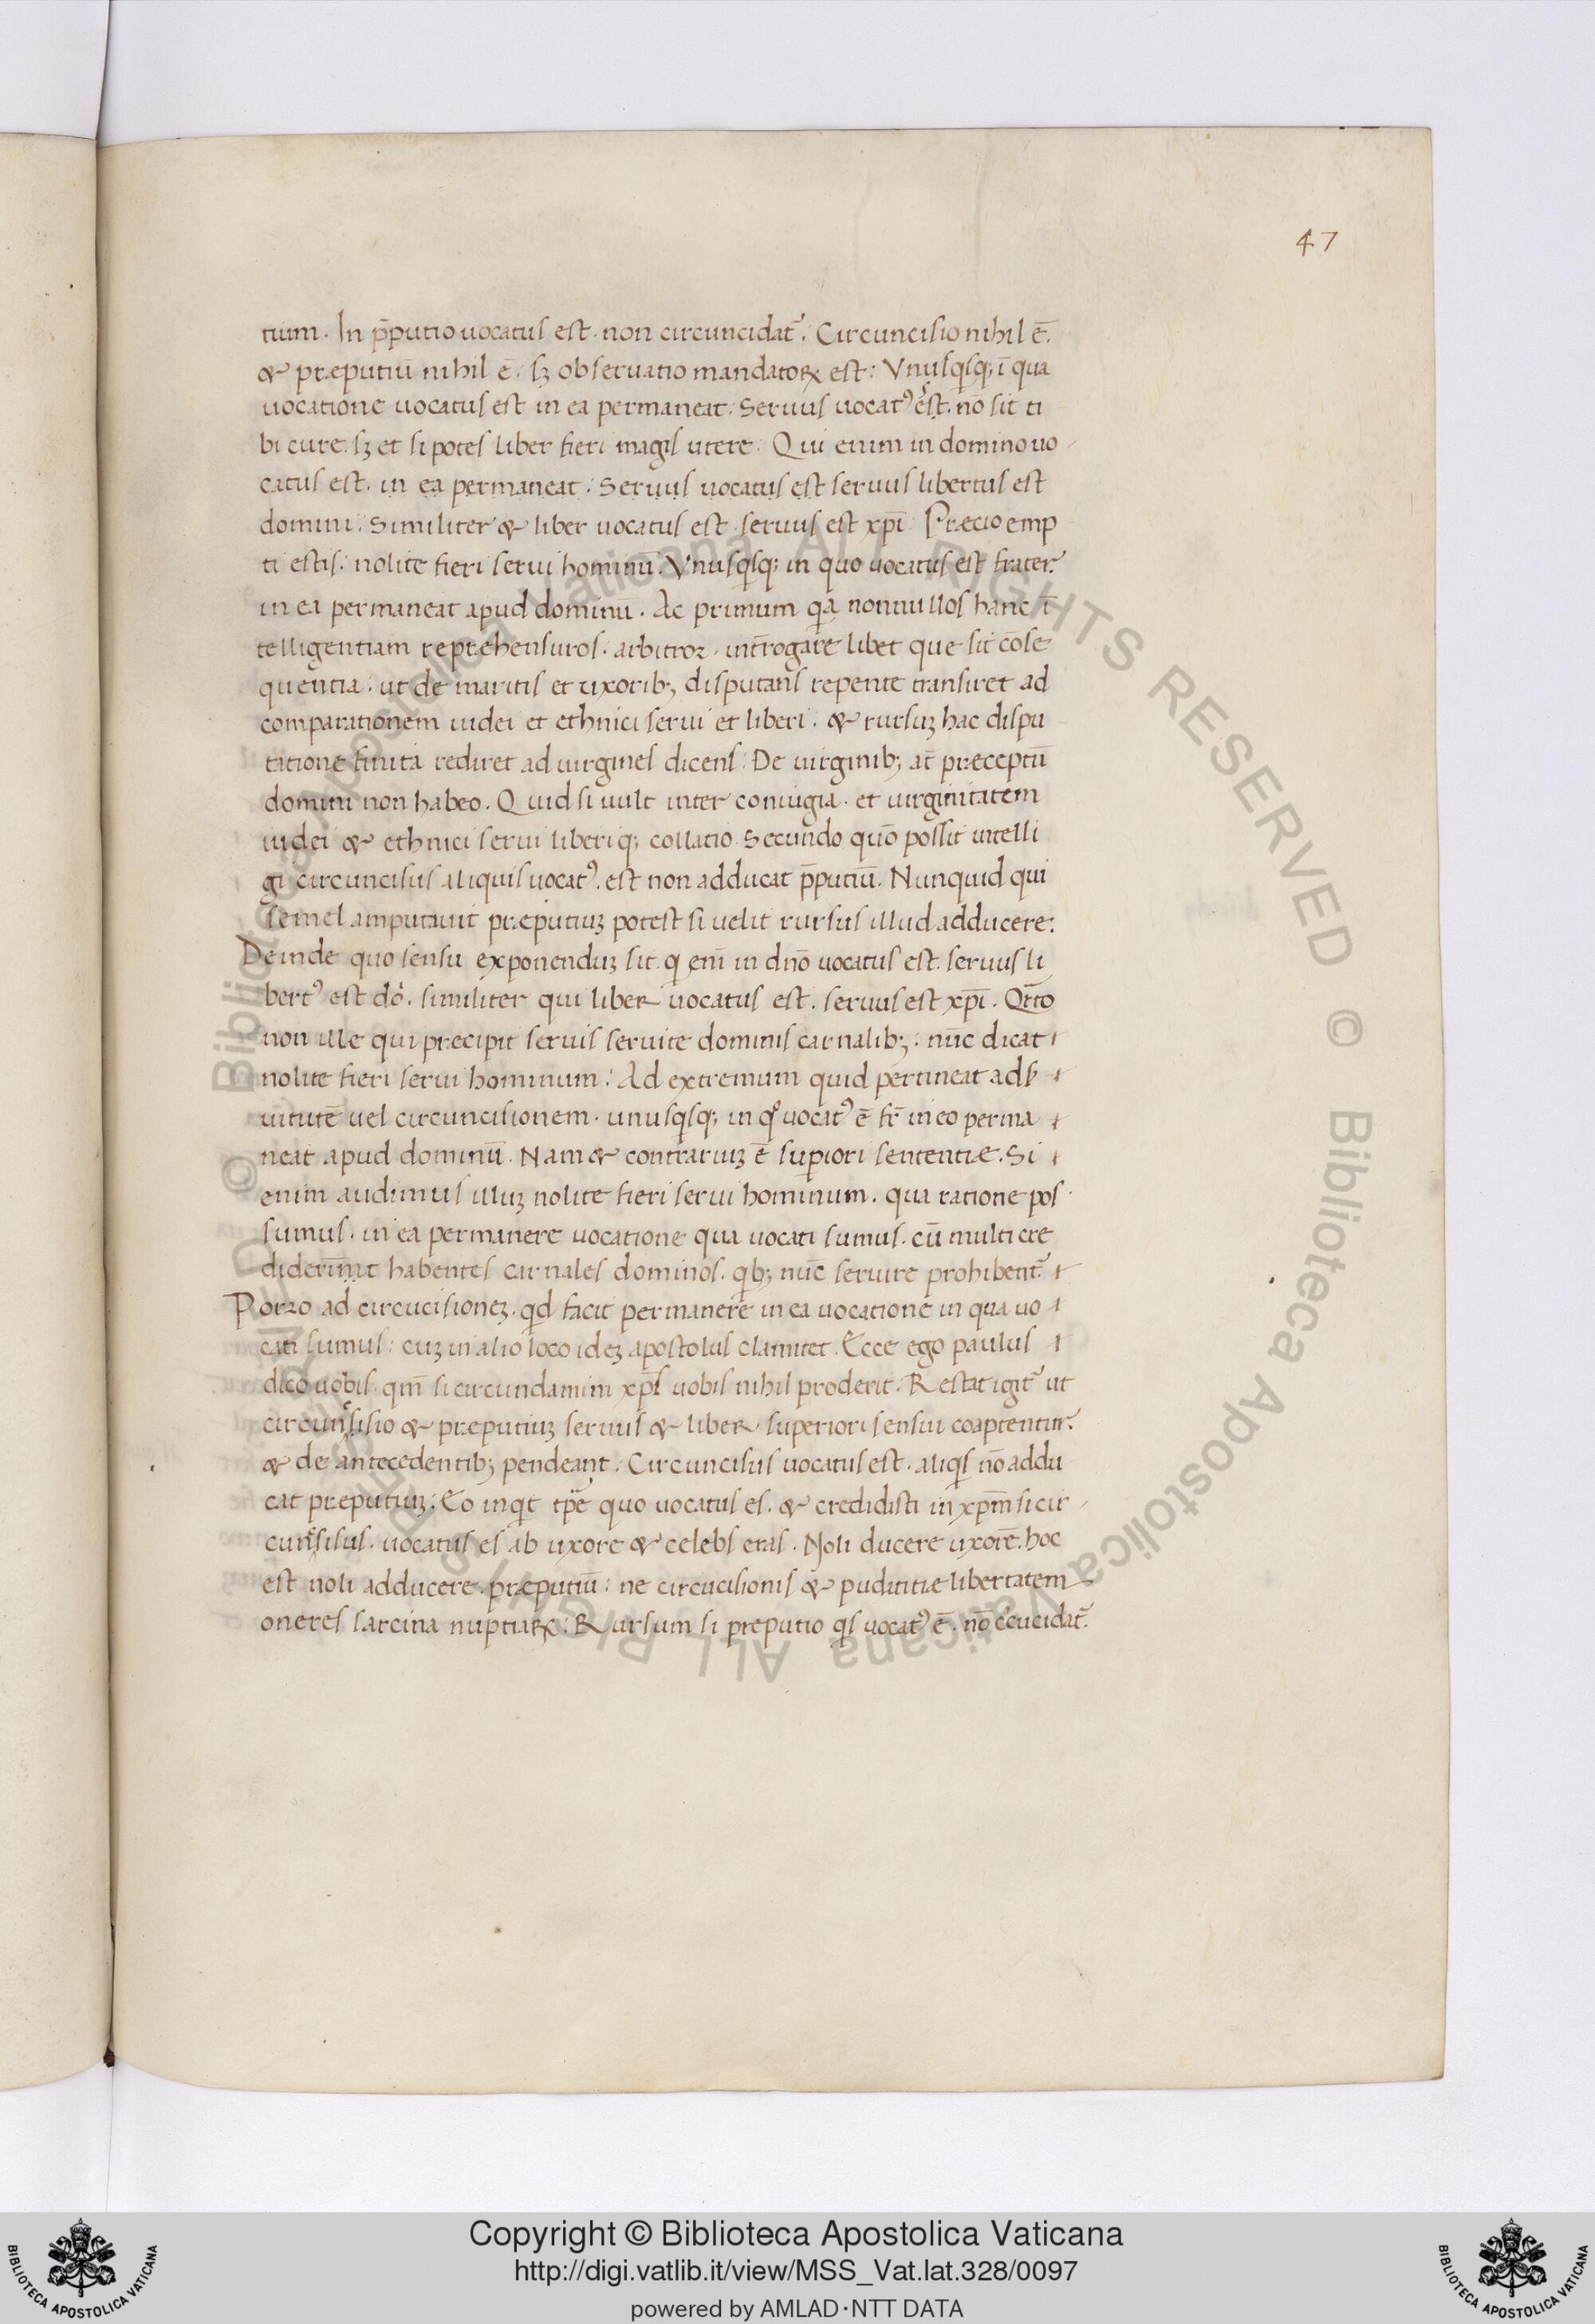 47
tium. In p̄putio uocatus est. non circuncidat᷑. Circuncisio nihil ē.
& præputiū nihil ē. sꝫ obseruatio mandatoꝝ est: Vnusqͥsqꝫ ī qua
uocatione uocatus est in ea permaneat. Seruus uocatꝰ est. nō sit ti
bi cure. sꝫ et si potes liber fieri magis utere. Qui enim in domino uo
catus est. in ea permaneat. Seruus uocatus est seruus libertus est
domini. Similiter & liber uocatus est seruus est xp̄i. Præcio emp
ti estis. nolite fieri serui hominū. Vnusqͥsqꝫ in quo uocatus est frater.
in ea permaneat apud dominū. Ac primum qͥa nonnullos hanc ī
telligentiam reprehensuros. arbitror. int̄rogare libet que sit cōse
quentia. ut de maritis et uxoribꝫ disputans repente transiret ad
comparationem iudei et ethnici serui et liberi. & rursuꝫ hac dispu
tatione finita rediret ad uirgines dicens. De uirginibꝫ at̄ præceptū
domini non habeo. Quid si uult inter coniugia. et uirginitatem
iudei & ethnici serui liberiqꝫ collatio. Secundo quō possit intelli
gi circuncisus aliquis uocatꝰ. est non adducat p̄putiū. Nunquid qui
semel amputauit præputiuꝫ potest si uelit rursus illud adducere.
Deinde quo sensu exponenduꝫ sit. qͥ eni᷑ in dn̄o uocatus est. seruus li
bertꝰ est do᷑. similiter qui liber uocatus est. seruus est xp̄i. Qr̄to
non ille qui præcipit seruis seruite dominis carnalibꝫ. nūc dicat
nolite fieri serui hominum. Ad extremum quid pertineat ad ẜ
uitutē uel circuncisionem. unusqͥsqꝫ in qͦ uocatꝰ ē fr̄ in eo perma
neat apud dominū. Nam & contrariuꝫ ē supiori sententiæ. Si
enim audimus illuꝫ nolite fieri serui hominum. qua ratione pos
sumus. in ea permanere uocatione qua uocati sumus. cū multi cre
diderint habentes carnales dominos. qͥbꝫ nūc seruire prohibent᷑.
Porro ad circūcisioneꝫ. qͥd facit permanere in ea uocatione in qua uo
cati sumus. cuꝫ in alio loco ideꝫ apostolus clamitet. Ecce ego paulus
dico uobis. qm̄ si circundamini xp̄s uobis nihil proderit. Restat igit᷑ ut
circuncisio & præputiuꝫ seruus & liber superiori sensui coaptentur.
& de antecedentibꝫ pendeant. Circuncisus uocatus est. aliqͥs nō addu
cat præputiuꝫ. Eo inqͥt tp̄e quo uocatus es. & credidisti in xp̄m si cir
cuncisus. uocatus es ab uxore & celebs eras. Noli ducere uxorē. hoc
est noli adducere præputiū. ne circūcisionis & pudititiæ libertatem
oneres sarcina nuptiaꝝ. Rursum si preputio qͥs uocatꝰ ē. nō c̄cūcidat᷑.
© Biblioteca Apostolica Vaticana ALL RIGHTS RESERVED © Biblioteca Apostolica Vaticana ALL RIGHTS RESERVED
Copyright © Biblioteca Apostolica Vaticana
http://digi.vatlib.it/view/MSS_Vat.lat.328/0097
powered by AMLAD·NTT DATA
BIBLIOTECA APOSTOLICA VATICANA
BIBLIOTECA APOSTOLICA VATICANA